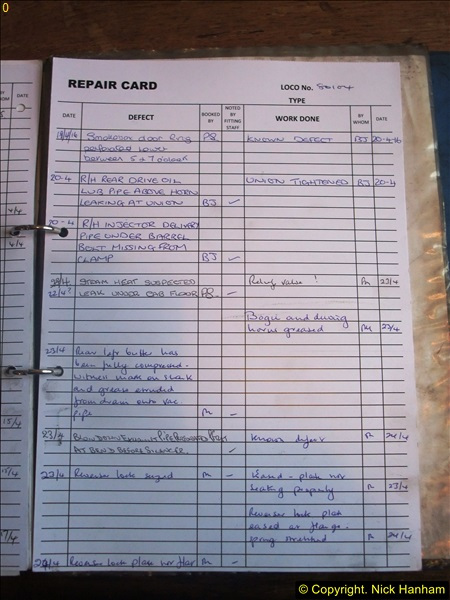 0
REPAIR CARD
LOCO No. 80104
TYPE
DATE
DEFECT
BOOKED BY
NOTED BY FITTING STAFF
WORK DONE
BY WHOM
DATE
Smokebox door ring
perforated lower
between 5 & 7 o'clock
KNOWN DEFECT BJ 20-4-16
20-4 R/H REAR DRIVE OIL
LUB PIPE ABOVE HORN
LEAKING AT UNION BJ
UNION TIGHTENED BJ 20-4
20-4 R/H INJECTOR DELIVERY
PIPE UNDER BARREL
BOLT MISSING FROM
CLAMP BJ
STEAM HEAT SUSPECTED
LEAK UNDER CAB FLOOR
Relief valve ! 23/4
Bogie and driving
horns greased 23/4
23/4 Rear left buffer has
been fully compressed -
witness mark on shank
and grease extruded
from drain onto vac
pipe
23/4
AT BEND BEFORE SILENCER.
Known defect 24/4
22/4 Reverser lock seized
Eased - plate not
seating properly 23/4
Reverser lock plate
eased at flange -
24/4
Reverser lock plate
© Copyright. Nick Hanham